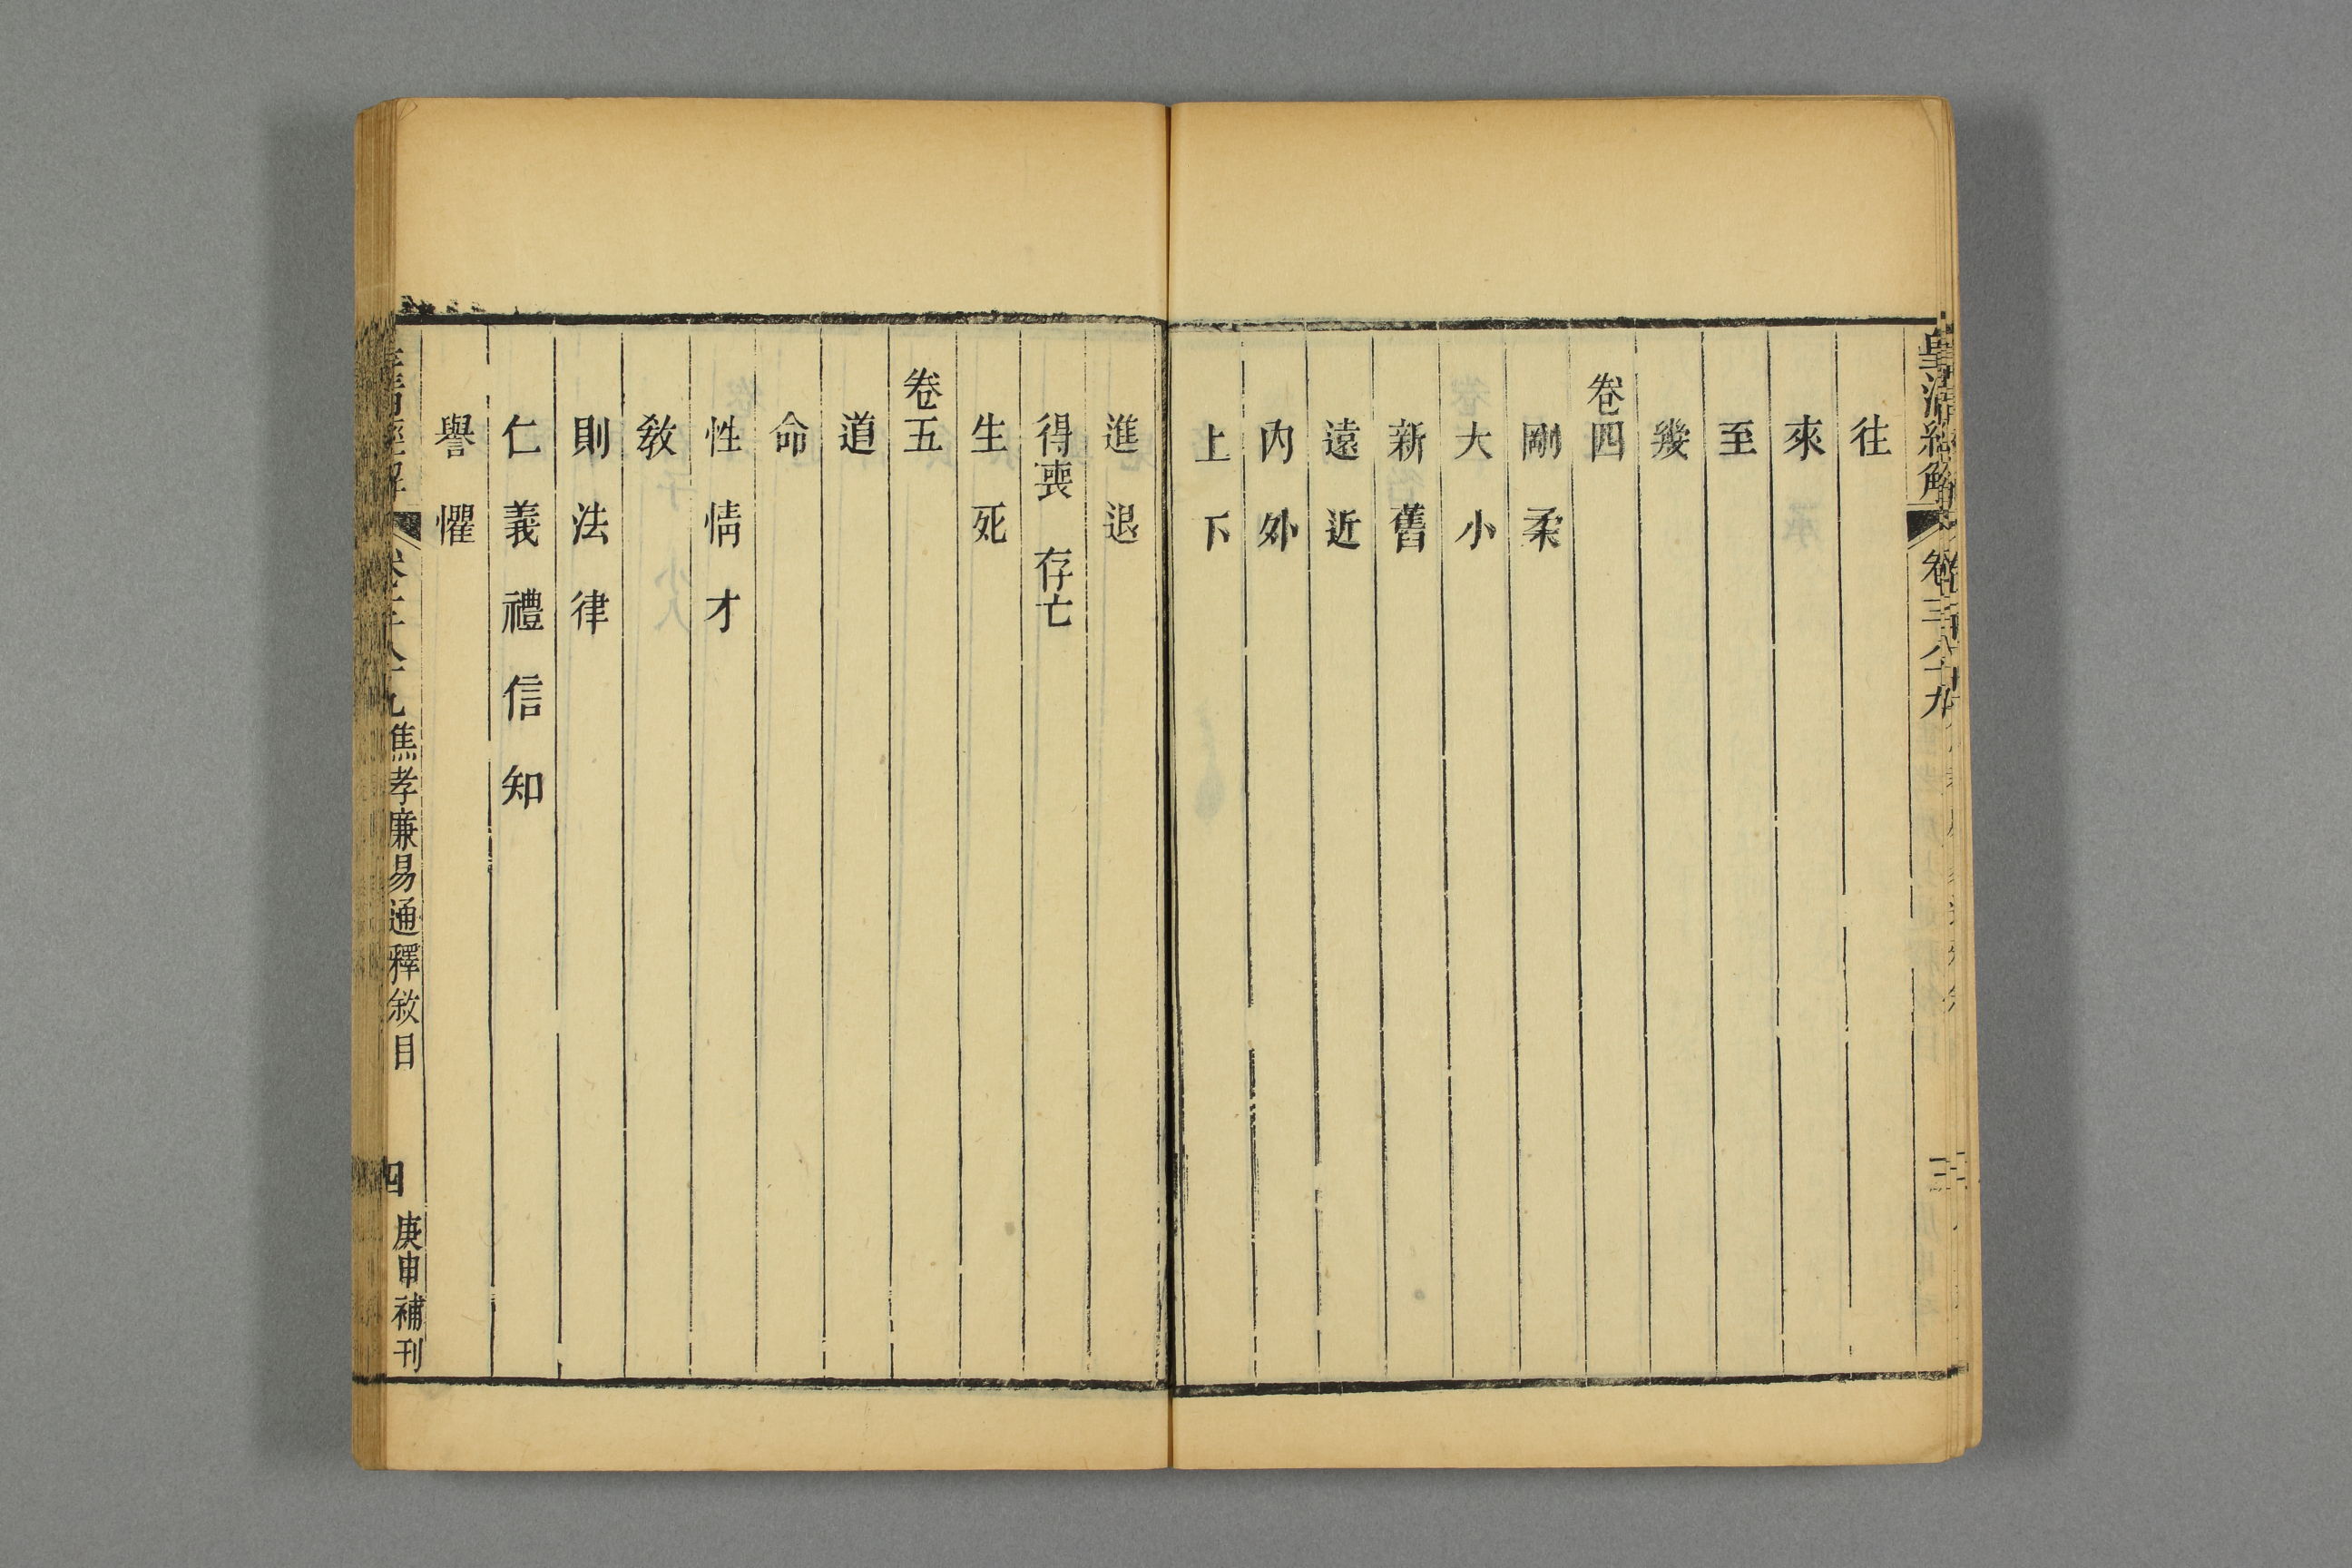 皇清經解
卷三百八十九
三
往
來
至
幾
卷四
剛 柔
大 小
新 舊
遠 近
內 外
上 下
進 退
得喪 存亡
生 死
卷五
道
命
性 情 才
敎
則 法 律
仁 義 禮 信 知
譽 懼
焦孝廉易通釋敘目
四
庚申補刊